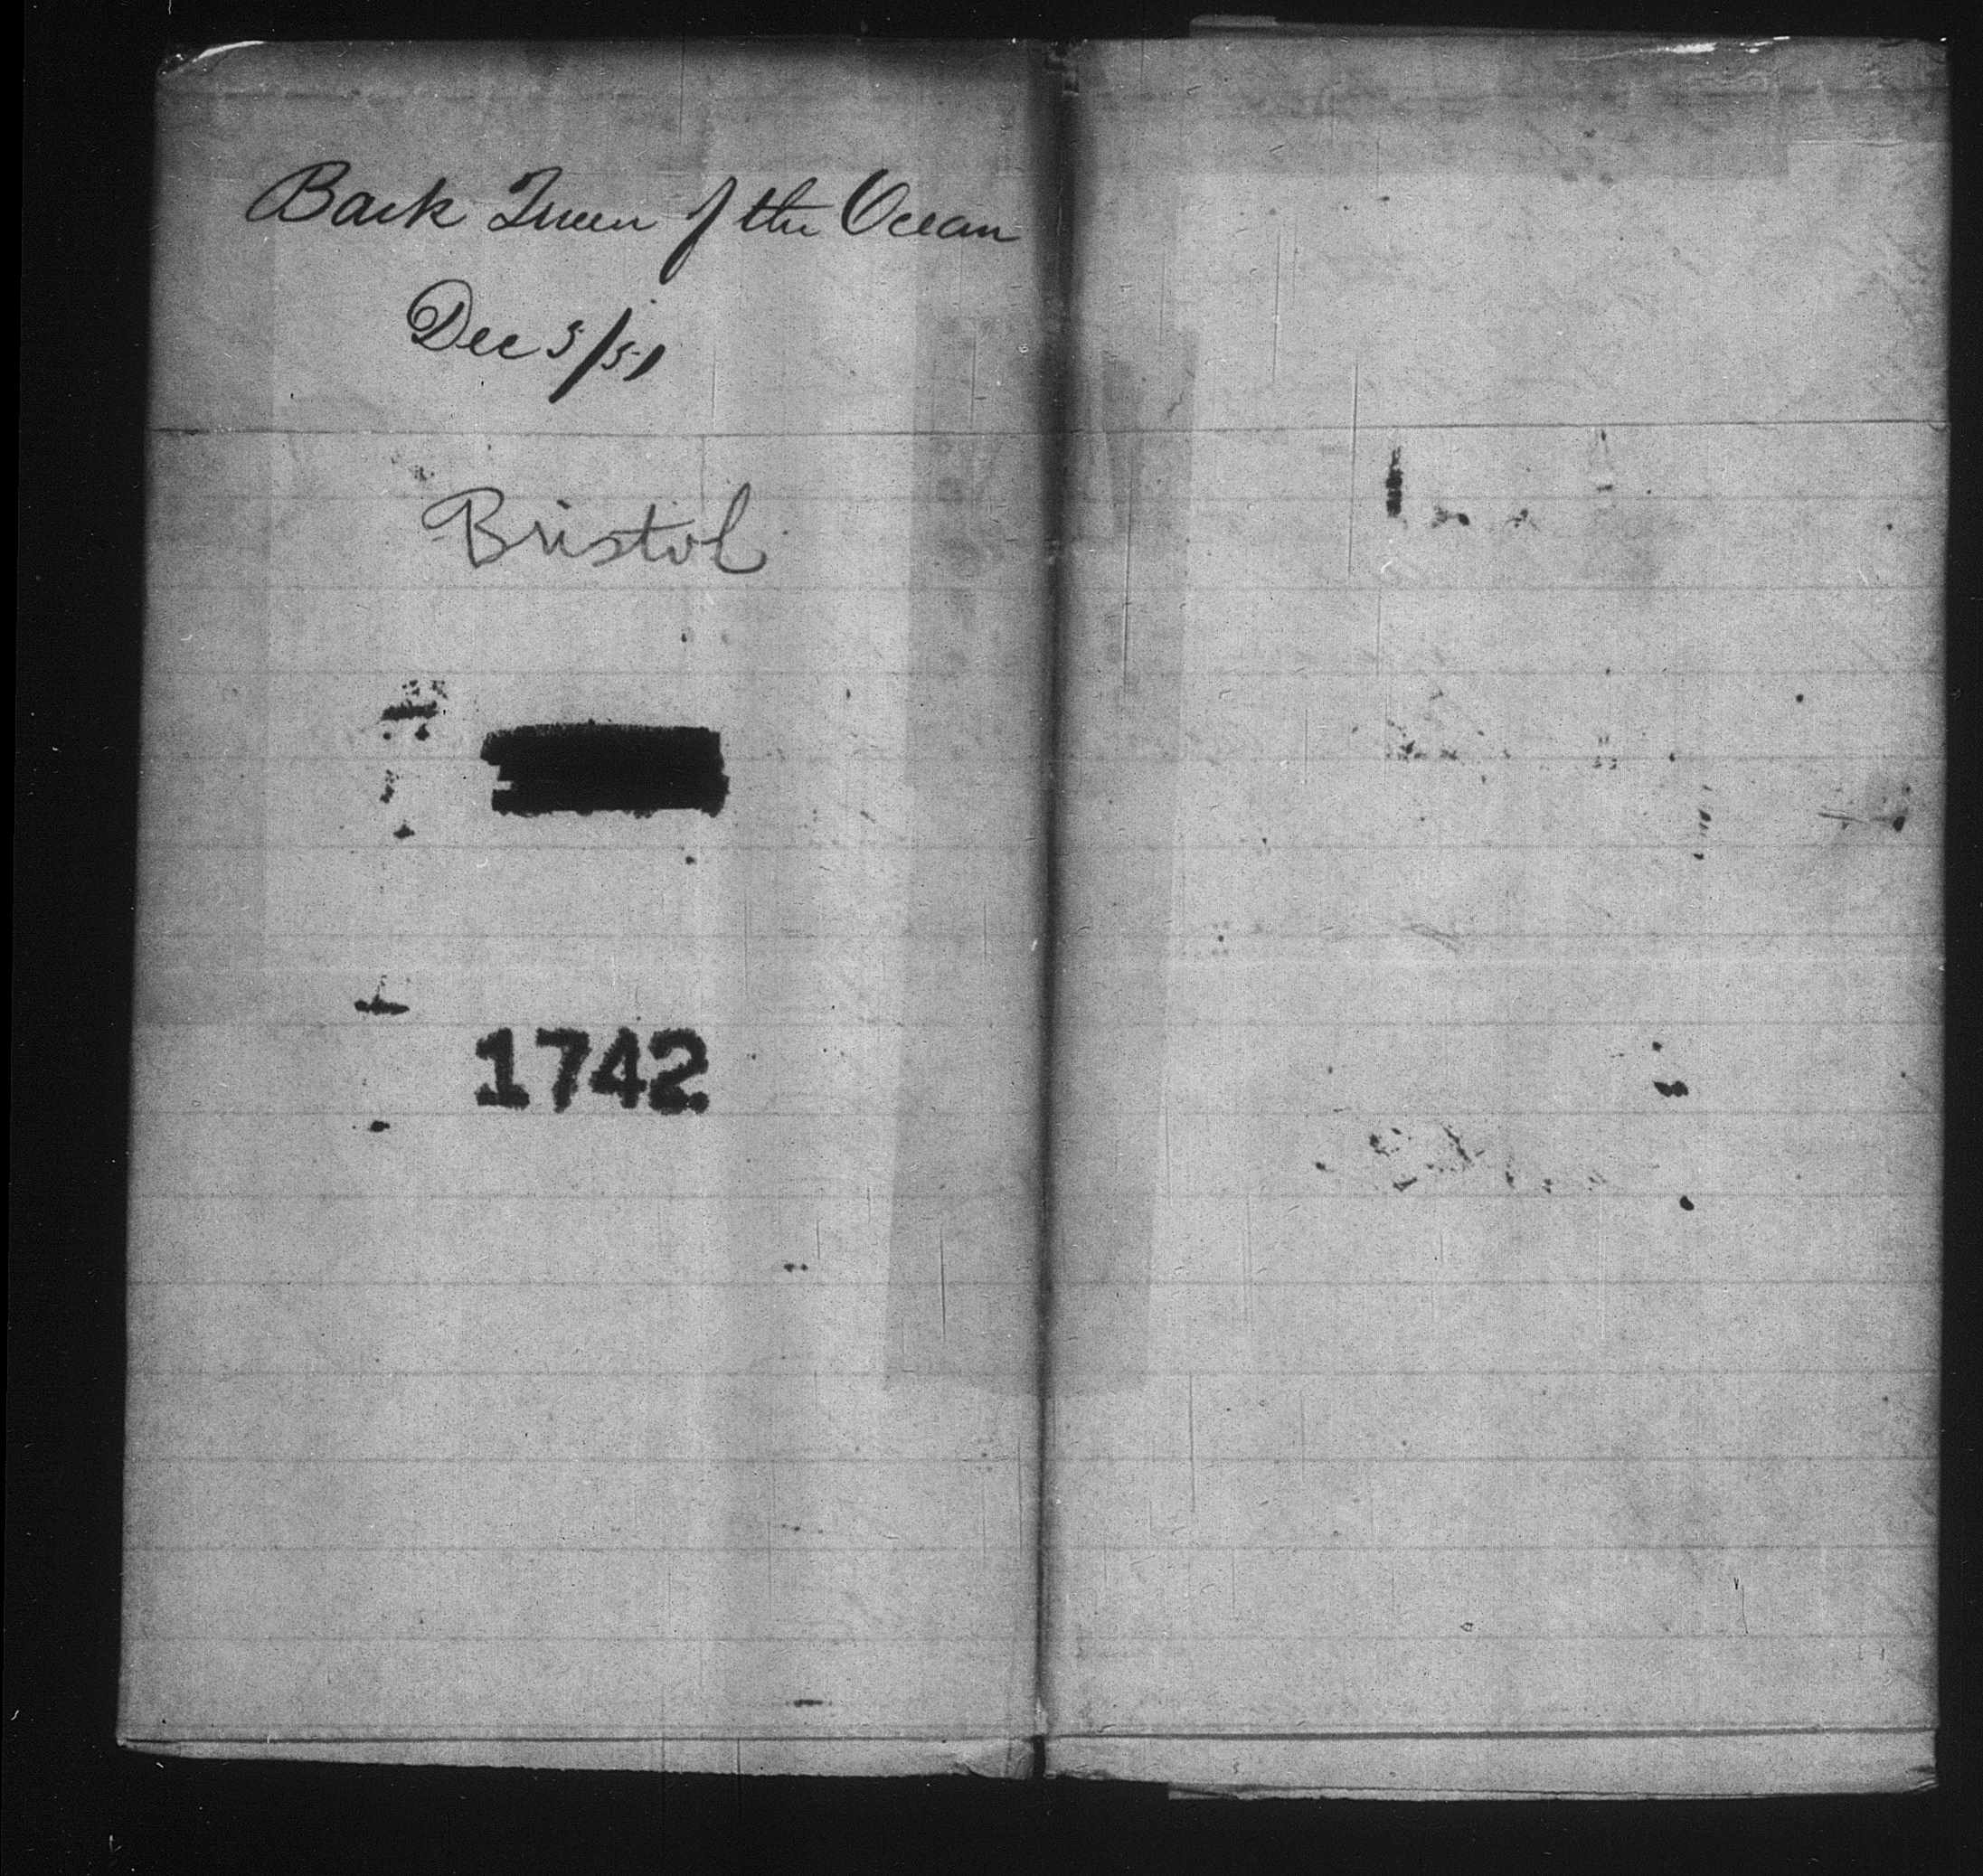 Bark Queen of the Ocean
Dec 5/51
Bristol
1742.